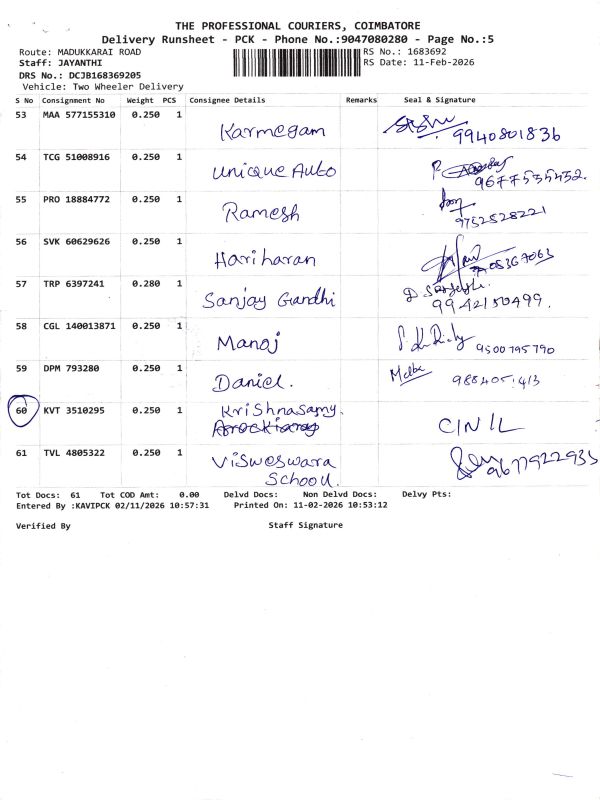 THE PROFESSIONAL COURIERS, COIMBATORE
Delivery Runsheet - PCK - Phone No.:9047080280 - Page No.:5
Route: MADUKKARAI ROAD RS No.: 1683692
Staff: JAYANTHI RS Date: 11-Feb-2026
DRS No.: DCJB168369205
Vehicle: Two Wheeler Delivery
S No Consignment No Weight PCS Consignee Details Remarks Seal & Signature
53 MAA 577155310 0.250 1 Karmegam 9940801836
54 TCG 51008916 0.250 1 Unique Auto
55 PRO 18884772 0.250 1 Ramesh 9752528221
56 SVK 60629626 0.250 1 Hariharan
57 TRP 6397241 0.280 1 Sanjay Gandhi 9942150499.
58 CGL 140013871 0.250 1 Manoj 9500795790
59 DPM 793280 0.250 1 Daniel.
60 KVT 3510295 0.250 1 Krishnasamy.
CINIL
61 TVL 4805322 0.250 1 Visweswara 9677922935
School.
Tot Docs: 61 Tot COD Amt: 0.00 Delvd Docs: Non Delvd Docs: Delvy Pts:
Entered By :KAVIPCK 02/11/2026 10:57:31 Printed On: 11-02-2026 10:53:12
Verified By Staff Signature